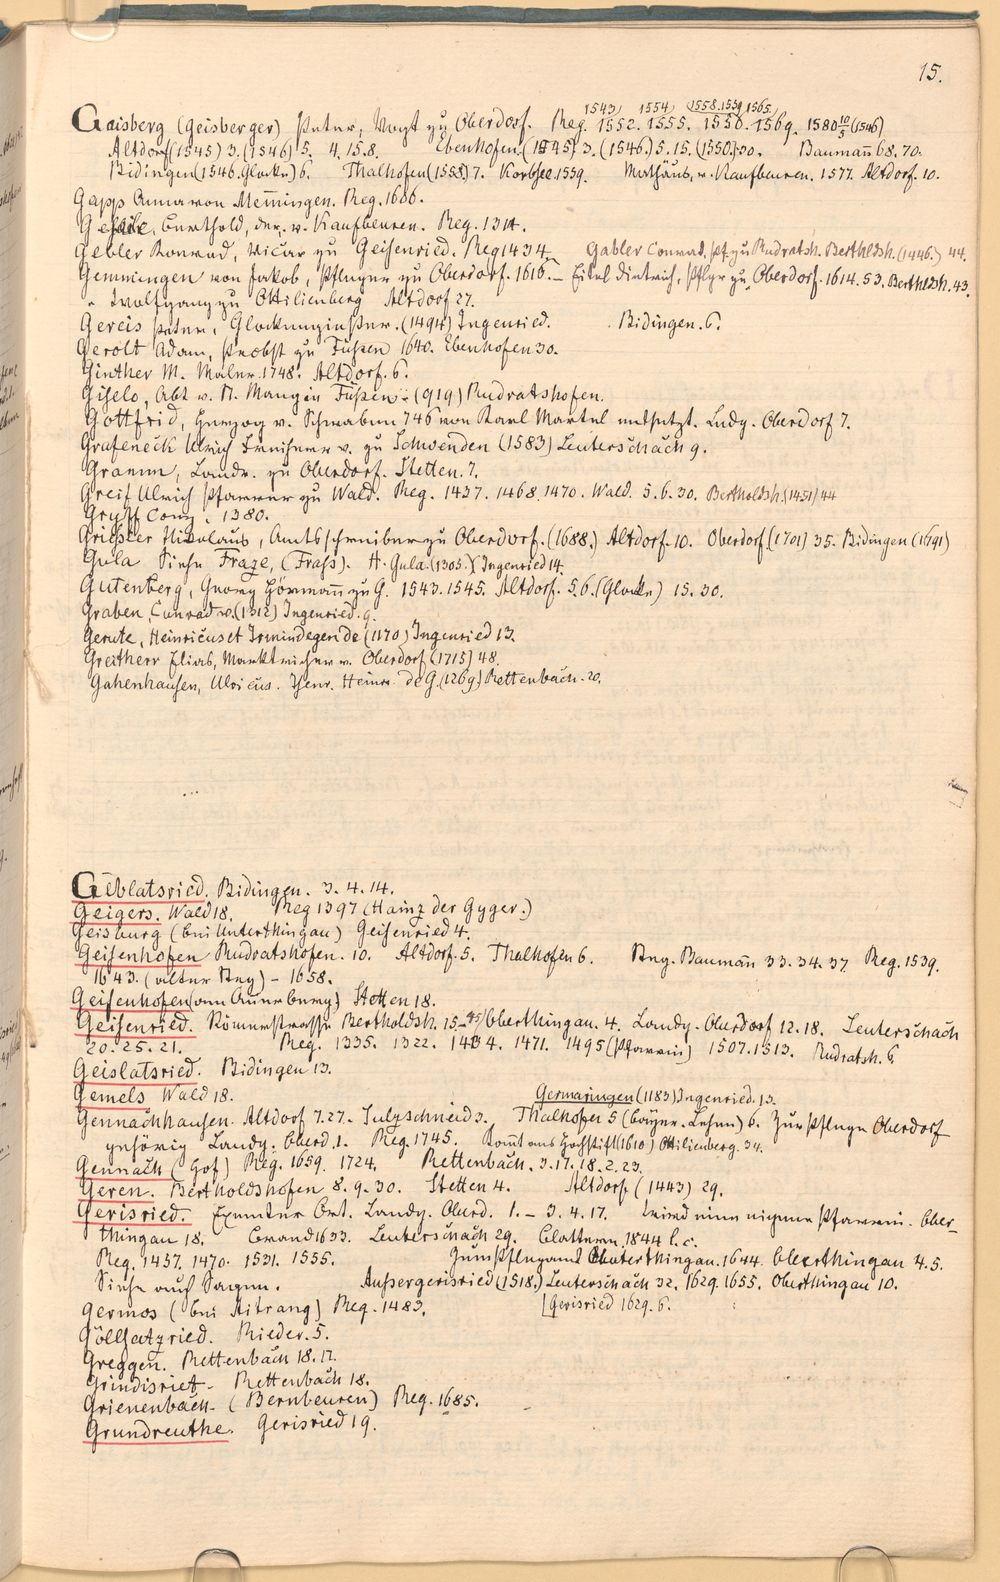 15.
1543, 1554, 1558.1559, 1565,
Gaisberg (Geisberger) Peter, Vogt zu Oberdorf. Reg. 1552. 1555. 1550. 1569. 1580 10/5 (1546)
Altdorf (1545) 3. (1546) 5. 4. 15. 8. Ebenhofen (1545) 3. (1546.) 5. 15. (1550.) 30. Baumañ 68. 70.
Bidingen (1546. Glocke) 6. Thalhofen (1558.) 7. Korbsee. 1559. Mathäus, v. Kaufbeuren. 1577. Altdorf. 10.
Gapp Anna von Memingen. Reg. 1686.
Berthold, der. v. Kaufbeuren. Reg. 1314.
Gebler Konrad, Vicar zu Geisenried. Reg 1434. Gabler Conrad, Pf. zu Rudratsh. Bertheldsh. (1446.) 44.
Gemmingen von Jakob, Pfleger zu Oberdorf. 1616. – Eitel Dietrich, Pflgr zu Oberdorf. 1614. 53. Bertholdsh. 43.
" Wolfgang zu Ottilienberg Altdorf 27.
Gereis Peter, Glockengießer. (1494) Ingenried. Bidingen. 6.
Gerolt Adam, Probst zu Füßen 1640. Ebenhofen 30.
Ginther M. Maler. 1748. Altdorf. 6.
Giselo, Abt v. St. Mang in Füßen (919) Rudratshofen.
Gottfrid, Herzog v. Schwaben 746 von Karl Martel entsetzt. Ludg. Oberdorf 7.
Grafeneck Ulrich Freiherr v. zu Schwenden (1583) Leuterschach 9.
Gramm, Landr. zu Oberdorf. Stetten. 7.
Greif Ulrich Pfarrer zu Wald. Reg. 1437. 1468. 1470. Wald. 5. 6. 30. Bertholdsh. (1451) 44
Gryff Conz. 1380.
Nikolaus, Amtsschreiber zu Oberdorf. (1688.) Altdorf. 10. Oberdorf. (1701) 35. Bidingen (1691)
Gula Siehe Fraze, (Fraß). H. Gula. (1305.) Ingenried 14.
Gutenberg, Georg Hörmañ zu G. 1543. 1545. Altdorf. 5. 6. (Glocke) 15. 30.
Graben, Conrad v. (1312) Ingenried. 9.
Gerute, Heinricus et Irmindegen de (1170) Ingenried 13.
Greitherr Elias, Marktrichter v. Oberdorf (1715) 48.
Gahenhausen, Ulricus. Heinr. de G. (1269) Rettenbach. 20.
Geblatsried. Bidingen. 3. 4. 14.
Geigers. Wald 18. Reg 1397 (Hainz der Gyger.)
Geisburg (bei Unterthingau) Geisenried 4.
Geisenhofen Rudratshofen. 10. Altdorf. 5. Thalhofen 6. Brg. Baumañ 33. 34. 37 Reg. 1539.
1643. (alter Brg) – 1658.
Geisenhofen (am Auerberg) Stetten 18.
Geisenried. Römerstrasse Bertholdsh. 15. Oberthingau. 4. Landg. Oberdorf 12. 18. Leuterschach
20. 25. 21. Reg. 1335. 1322. 1434. 1471. 1495 (Pfarrei) 1507. 1513. Rudratsh. 6.
Geislatsried. Bidingen 13.
Gemels Wald 18. Germaringen (1183) Ingenried. 13.
Gennachhausen. Altdorf 7. 27. Sulzschneid 3. Thalhofen 5 (bayer. Lehen) 6. Zur Pflege Oberdorf
gehörig Landg. Oberd. 1. Reg. 1745. Komt ans Hochstift (1610) Ottilienberg. 34.
Gennach (Hof) Reg. 1659. 1724. Rettenbach. 3. 17. 18. 2. 23.
Geren. Bertholdshofen 8. 9. 30. Stetten 4. Altdorf. (1443) 29.
Gerisried. Exemter Ort. Landg. Oberd. 1. – 3. 4. 17. Wird eine eigene Pfarrei. Ober-
thingau 18. Brand 1633. Leuterschach 29. Blattern 1844 l. c.
Reg. 1457. 1470. 1531. 1555. Zum Pflegamt Unterthingau. 1644. Oberthingau 4. 5.
Siehe auch Sagen. Aussergerisried (1518.) Leuterschach 32. 1629. 1655. Oberthingau 10.
Germos (bei Aitrang) Reg. 1483. [Gerisried 1629. 6.
Göllhatzried. Rieder. 5.
Greggen. Rettenbach 18. 17.
Grindisriet. Rettenbach 18.
Grienenbach. (Bernbeuren) Reg. 1685.
Grundreuthe. Gerisried 19.